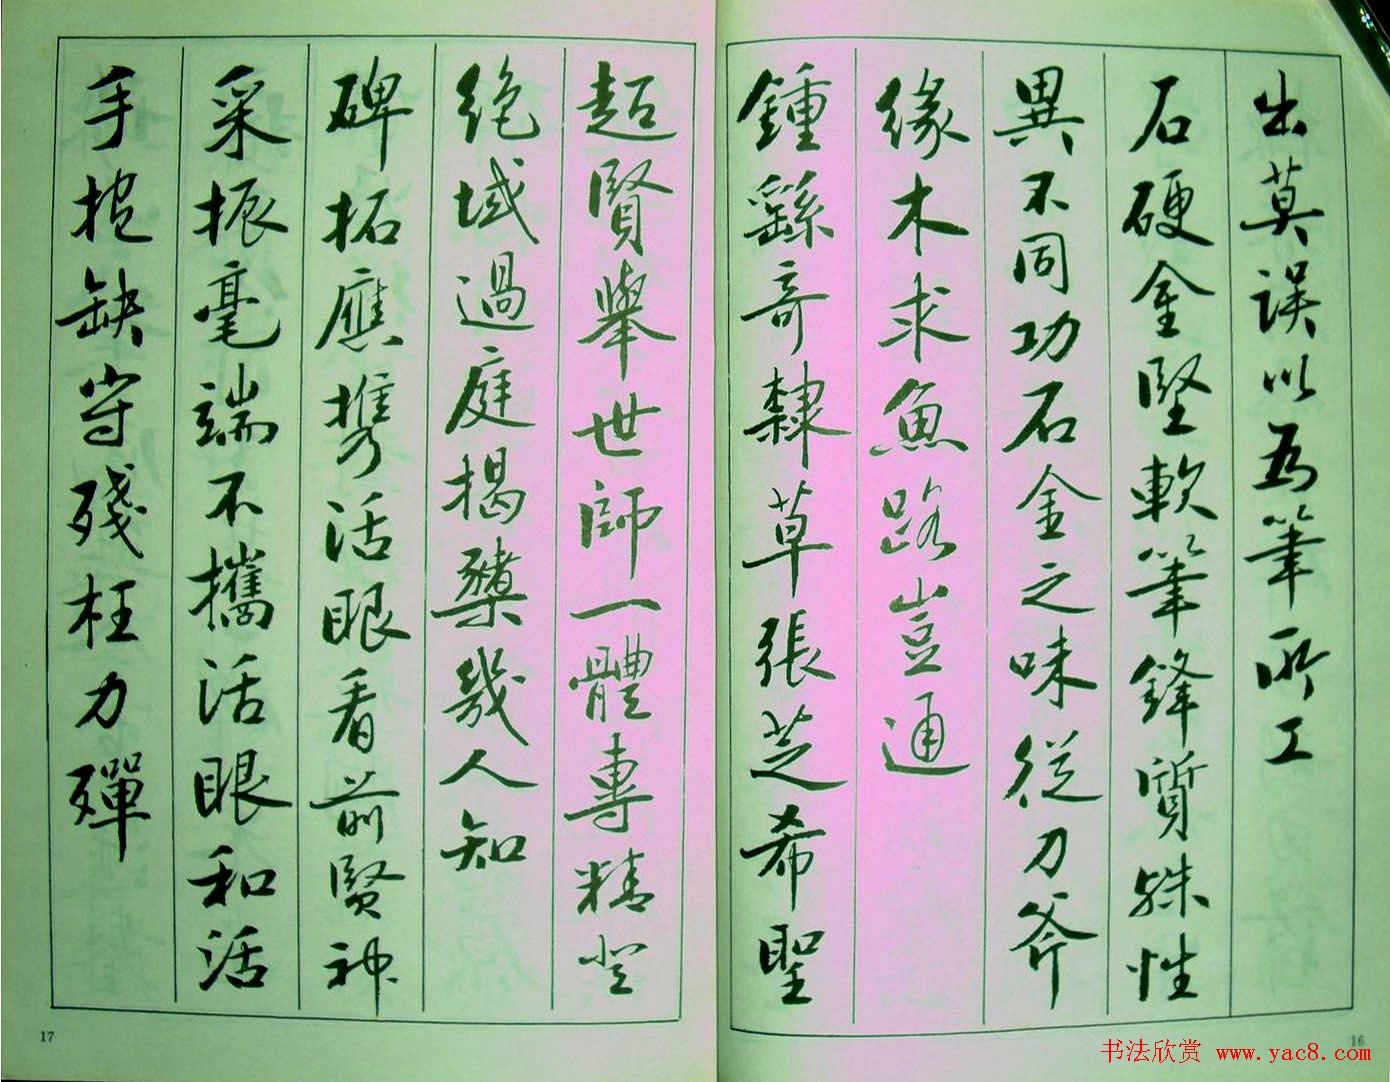 出莫误以为筆所工
石硬金堅軟筆鋒質殊性
異不同功石金之味從刀斧
緣木求魚路豈通
鍾繇奇隸草張芝希聖
超賢舉世師一體專精登
絶域過庭揭櫫幾人知
碑拓應携活眼看前賢神
采振毫端不攜活眼和活
手抱缺守殘枉力殫
17
16
书法欣赏 www.yac8.com